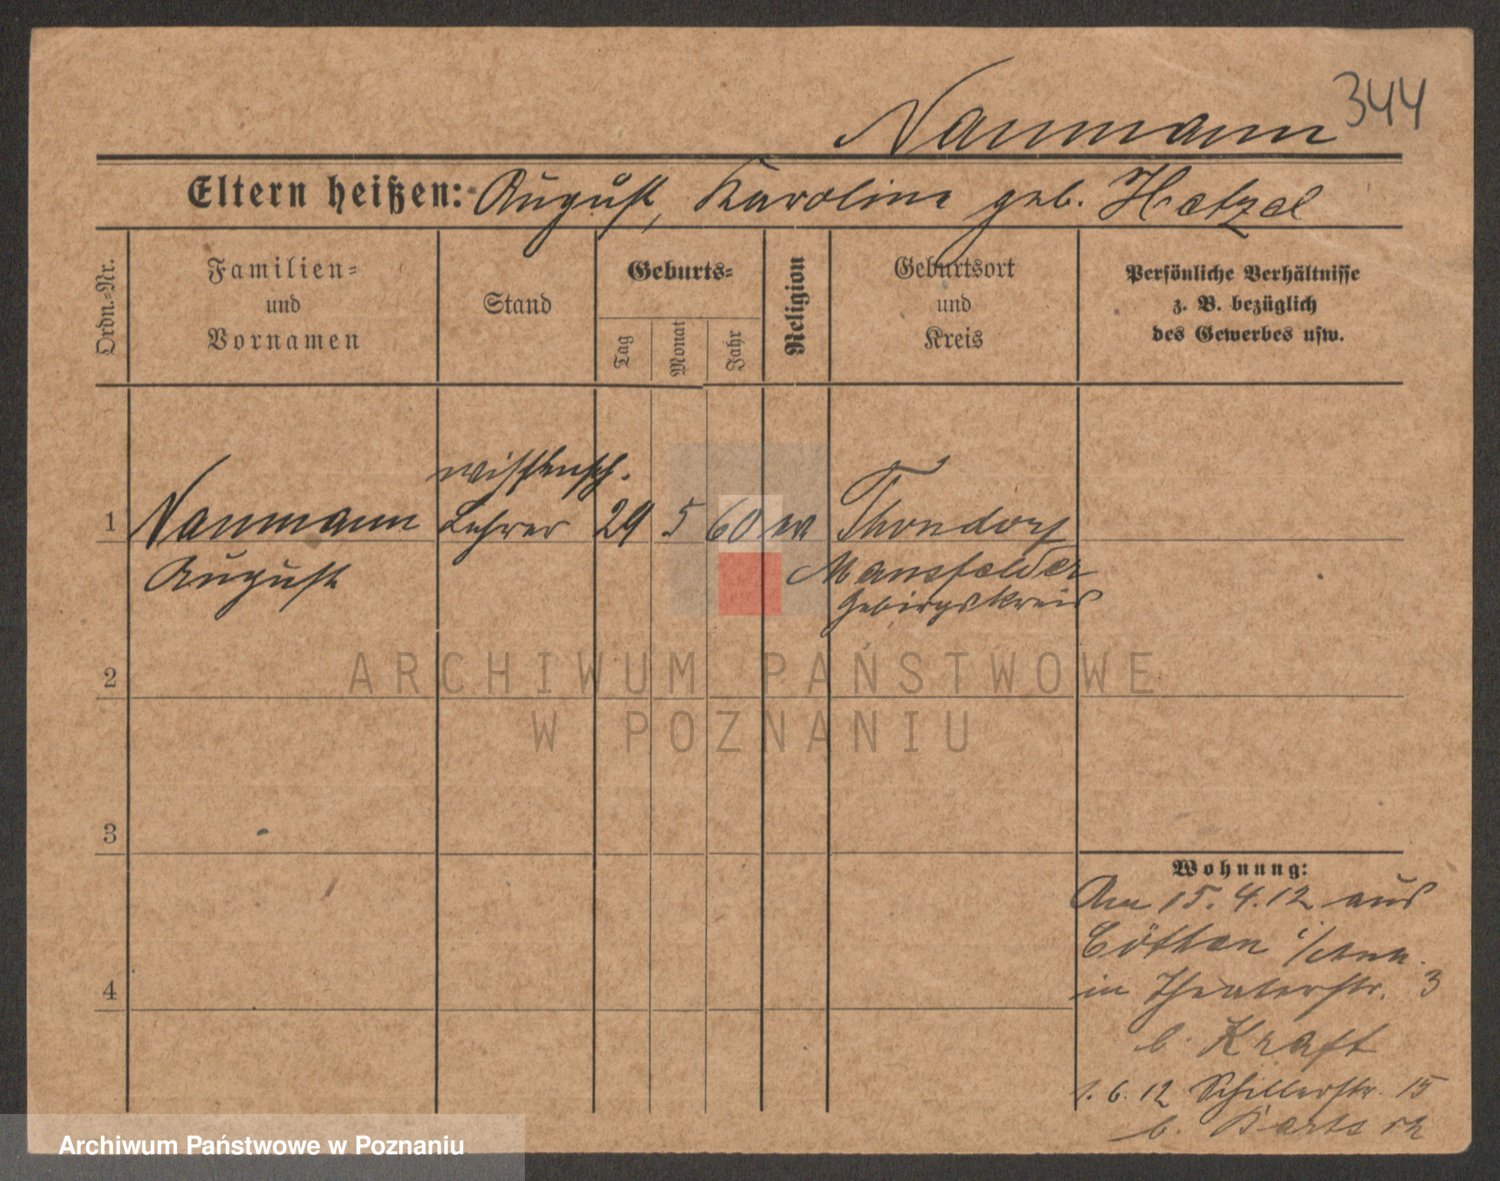 344
Naumann
Eltern heißen: August, Karoline geb. Hetzel
Ordn.-Nr.
Familien-
und
Vornamen
Stand
Geburts-
Tag
Monat
Jahr
Religion
Geburtsort
und
Kreis
Persönliche Verhältnisse
z. B. bezüglich
des Gewerbes usw.
wissensch.
1 Naumann Lehrer 29 5 60 ev Thondorf
August Mansfelder
Gebirgskreis
2
3
4
Wohnung:
Am 15. 4. 12 aus
Cöthen i/
in Theaterstr. 3
b. Kraft
1. 6. 12 Schillerstr. 15
b.
ARCHIWUM PAŃSTWOWE
W POZNANIU
Archiwum Państwowe w Poznaniu